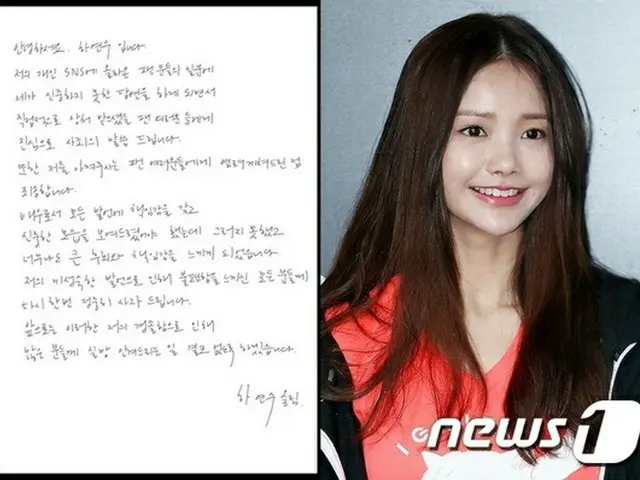 안녕하세요. 하연수 입니다.
저의 개인 SNS에 올라온 팬분들의 질문에
제가 신중하지 못한 답변을 하게 되면서
직접적으로 상처 받으셨을 팬 여러분들에게
진심으로 사죄의 말씀 드립니다.
또한 저를 아껴주시는 팬 여러분들에게 염려끼쳐드린 점
죄송합니다.
배우로서 모든 발언에 책임감을 갖고
신중한 모습을 보여드렸어야 했는데 그러지 못했고
너무나도 큰 후회와 책임감을 느끼게 되었습니다.
저의 미성숙한 발언으로 인해 불쾌함을 느끼신 모든 분들께
다시 한번 정중히 사과 드립니다.
앞으로는 이러한 저의 경솔함으로 인해
많은 분들께 실망 안겨드리는 일 결코 없도록 하겠습니다.
하연수 올림.
news1